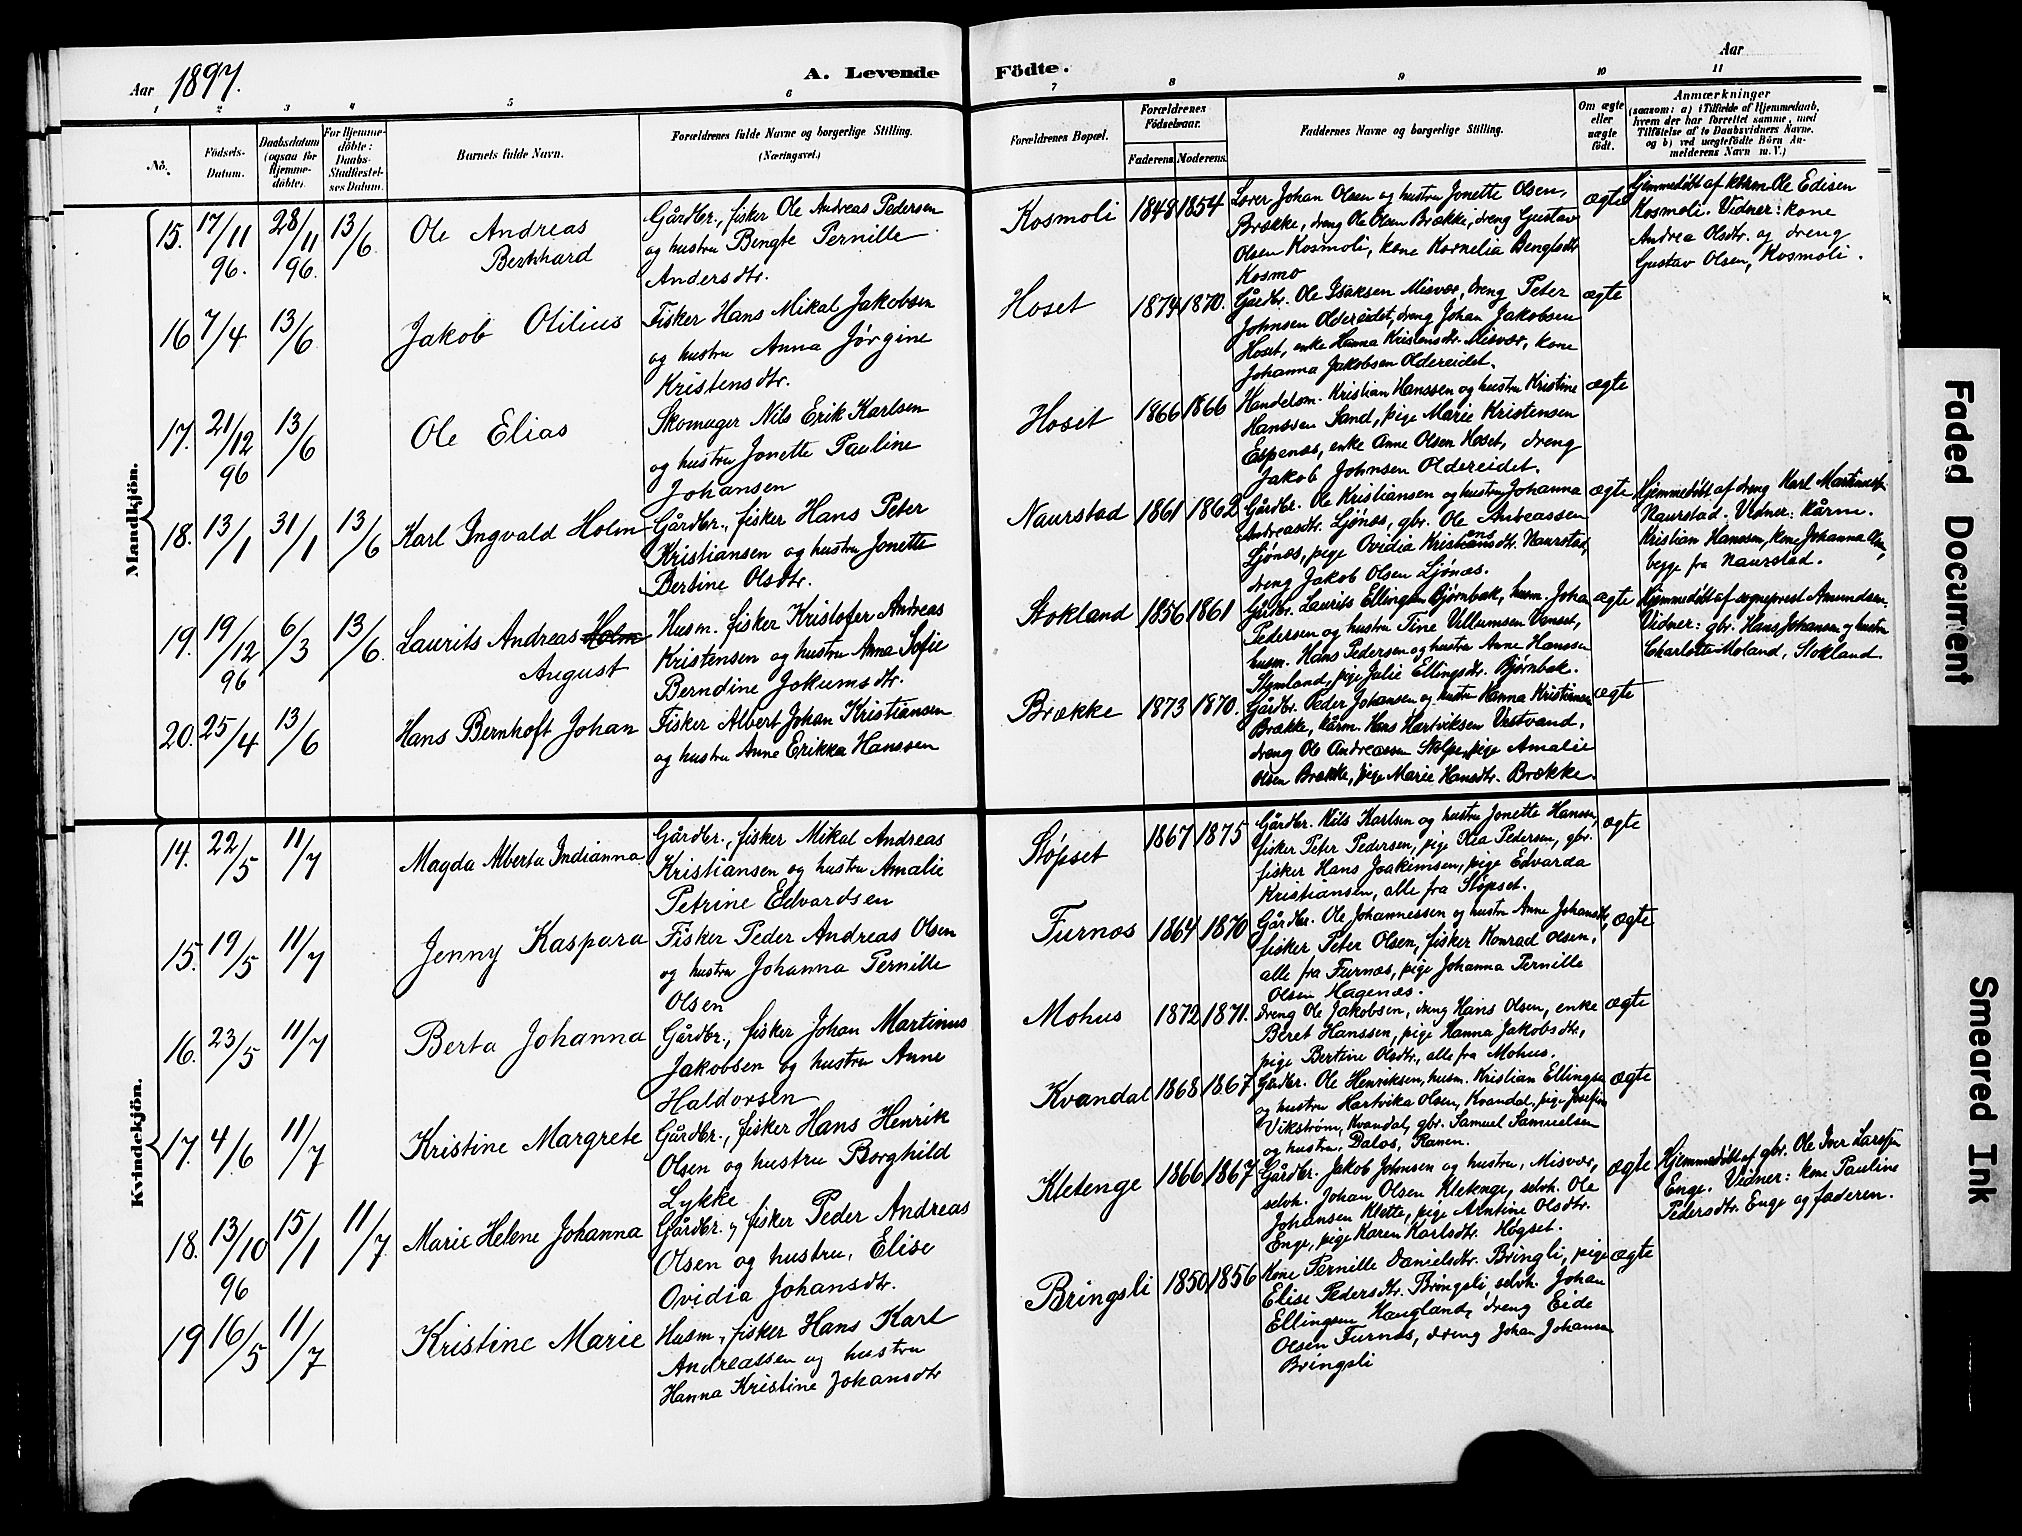 Aar 1897.
A. Levende Födte.
Aar
1 2 3 4 5 6 7 8 9 10 11
No.
Födsels-Datum.
Daabsdatum (ogsaa for Hjemmedöbte).
For Hjemmedöbte: Daabs-Stadfæstelses Datum.
Barnets fulde Navn.
Forældrenes fulde Navne og borgerlige Stilling.
(Næringsvei.)
Forældrenes Bopæl.
Forældrenes Födselsaar.
Faderens. Moderens.
Faddernes Navne og borgerlige Stilling.
Om ægte eller uægte födt.
Anmærkninger
(saasom: a) i Tilfælde af Hjemmedaab, hvem der har forrettet samme, med Tilföielse af to Daabsvidners Navne, og b) ved uægtefödte Börn Anmelderens Navn m. V.)
Mandkjön.
15. 17/11 96. 28/11 96. 13/6
Ole Andreas
Bernhard
Gårdbr., fisker Ole Andreas Pedersen
og hustru Bengte Pernille
Andersdtr.
Kosmoli 1848 1854
Lærer Johan Olsen og hustru Jonette Olsen,
Brække, dreng Ole Olsen Brække, dreng Gustav
Olsen Kosmoli, kone Kornelia Bengtsdtr
Kosmo
ægte
Hjemmedöbt af kårm Ole Edisen
Kosmoli. Vidner: kone
Andrea Olsdtr. og dreng
Gustav Olsen, Kosmoli.
16 7/4 13/6
Jakob Otilius
Fisker Hans Mikal Jakobsen
og hustru Anna Jørgine
Kristensdtr.
Hoset 1874 1870.
Gårdbr. Ole Isaksen Misvær, dreng Peter
Johnsen Oldereidet, dreng Johan Jakobsen
Hoset, enke Hanna Kristensdtr. Misvær, kone
Johanna Jakobsen Oldereidet.
ægte
17. 21/12 96 13/6
Ole Elias
Skomager Nils Erik Karlsen
og hustru Jonette Pauline
Johansen
Hoset 1866 1866
Handelsm. Kristian Hanssen og hustru Kristine
Hanssen Sand, pige Marie Kristensen
Espenæs, enke Anne Olsen Hoset, dreng
Jakob Johnsen Oldereidet.
ægte
18. 13/1 31/1 13/6
Karl Ingvald Holm
Gårdbr., fisker Hans Peter
Kristiansen og hustru Jonette
Bertine Olsdtr.
Naurstad 1861 1862
Gårdbr. Ole Kristiansen og hustru Johanna
Andreasdtr. Ljønæs, gbr. Ole Andreassen
Ljønæs, pige Ovidia Kristiansdtr. Naurstad,
dreng Jakob Olsen Ljønæs.
ægte
Hjemmedöbt af dreng Karl
Naurstad. Vidner: kårm.
Kristian Hanssen, kone Johanna
begge fra Naurstad.
19. 19/12 96 6/3 13/6.
Laurits Andreas Holm
August
Husm. fisker Kristofer Andreas
Kristensen og hustru Anna Sofie
Berndine Jokumsdtr.
Stokland 1856 1861
Gårdbr. Laurits Ellingsen Bjørnbak, husm. Johan
Pedersen og hustru Tine Villumsen Vanset,
husm. Hans Pedersen og hustru Anne Hanssen
Stemland, pige Julie Ellingsdtr. Bjørnbak.
ægte
Hjemmedöbt af sogneprest Amundsen.
Vidner: gbr. Hans Johansen og hustru
Charlotte Moland, Stokland.
20. 25/4 13/6
Hans Bernhoft Johan
Fisker Albert Johan Kristiansen
og hustru Anne Erikka Hanssen
Brække 1873 1870.
Gårdbr. Peder Johansen og hustru Hanna Kristiansen
Brække, kårm. Hans Hartviksen Vestvand,
dreng Ole Andreassen pige Amalie
Olsen Brække, pige Marie Hansdtr. Brække.
ægte
Kvindekjön.
14. 22/5 11/7
Magda Alberta Indianna
Gårdbr., fisker Mikal Andreas
Kristiansen og hustru Amalie
Petrine Edvardsen
Støpset 1867 1875
Gårdbr. Nils Karlsen og hustru Jonette Hanssen,
fisker Peter Pedersen, pige Pedersen, gbr.
fisker Hans Joakimsen, pige Edvarda
Kristiansen, alle fra Støpset.
ægte
15. 19/5 11/7
Jenny Kaspara
Fisker Peder Andreas Olsen
og hustru Johanna Pernille
Olsen
Furnes 1864 1870
Gårdbr. Ole Johannessen og hustru Anne Johansdtr,
fisker Peter Olsen, fisker Konrad Olsen,
alle fra Furnæs, pige Johanna Pernille
Olsen Hagenæs.
ægte
16. 23/5 11/7
Berta Johanna
Gårdbr., fisker Johan Martinus
Jakobsen og hustru Anne
Haldorsen
Mohus 1872 1871.
Dreng Ole Jakobsen, dreng Hans Olsen, enke
Beret Hanssen, pige Hanna Jakobsdtr,
pige Bertine Olsdtr, alle fra Mohus.
ægte
17. 4/6 11/7
Kristine Margrete
Gårdbr., fisker Hans Henrik
Olsen og hustru Borghild
Lykke
Kvandal 1868 1867
Gårdbr. Ole Henriksen, husm. Kristian Ellingsen
og hustru Hartvika Olsen, Kvandal, pige Josefin
Vikstrøm, Kvandal, gbr. Samuel Samuelsen
og hustru,
ægte
18. 13/10 96 15/1 11/7
Marie Helene Johanna
Gårdbr. og fisker Peder Andreas
Olsen og hustru, Elise
Ovidia Johansdtr.
Kletenge 1866 1867
Gårdbr. Jakob Johnsen og hustru, Misvær,
selvh. Johan Olsen Kletenge, selvh. Ole
Johansen Klette, pige Antine Olsdtr.
Enge, pige Karen Karlsdtr. Høgset.
ægte
Hjemmedöbt af gbr. Ole Iver Larssen
Enge. Vidner: kone Pauline
Pedersdtr. Enge og faderen.
19 16/5 11/7
Kristine Marie
Husm., fisker Hans Karl
Andreassen og hustru
Hanna Kristine Johansdtr
Bringsli 1850 1856
Kone Pernille Danielsdtr. Bringsli, pige
Elise Pedersdtr. Bringsli, selvh. Johan
Ellingsen Haugland, dreng Eide
Olsen Furnes, dreng Johan Johansen
Bringsli
ægte
Faded Document
Smeared Ink